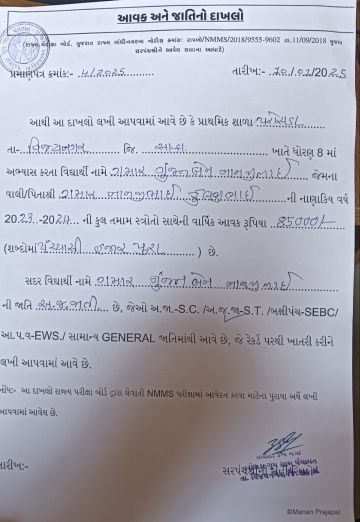 આવક અને જાતિનો દાખલો
(રાજ્ય પરીક્ષા બોર્ડ, ગુજરાત રાજ્ય ગાંધીનગરના નોટીસ ક્રમાંક: રાપબો/NMMS/2018/9555-9602 તા.11/09/2018 મુજબ
સરપંચશ્રીને આપેલ સત્તાના આધારે)
પ્રમાણપત્ર ક્રમાંક:- 4/2025 તારીખ:- 20/01/2025
આથી આ દાખલો લખી આપવામાં આવે છે કે પ્રાથમિક શાળા
તા- વિજયનગર જિ. સા.કાં ખાતે ધોરણ 8 માં
અભ્યાસ કરના વિદ્યાર્થી નામે ગમાર ગુંજનબેન નાનજીભાઈ જેમના
વાલી/પિતાશ્રી ગમાર નાનજીભાઈ ની નાણાકિય વર્ષ
2023-2024 ની કુલ તમામ સ્ત્રોતો સાથેની વાર્ષિક આવક રૂપિયા 85000/-
(શબ્દોમાં પંચ્યાસી હજાર પુરા) છે.
સદર વિદ્યાર્થી નામે ગમાર ગુંજનબેન નાનજીભાઈ
ની જાતિ અ.જ.જાતી છે, જેઓ અ.જા.-S.C. /અ.જ.જા-S.T. /બક્ષીપંચ-SEBC/
આ.પ.વ-EWS./ સામાન્ય GENERAL જાતિમાંથી આવે છે, જે રેકર્ડ પરથી ખાતરી કરીને
લખી આપવામાં આવે છે.
નોંધ:- આ દાખલો રાજ્ય પરીક્ષા બોર્ડ દ્વારા લેવાની NMMS પરીક્ષામાં આવેદન કરવા માટેના પુરાવા અર્થે લખી
આપવામાં આવેલ છે.
તારીખ:- સરપંચશ્રીના
©Manan Prajapati